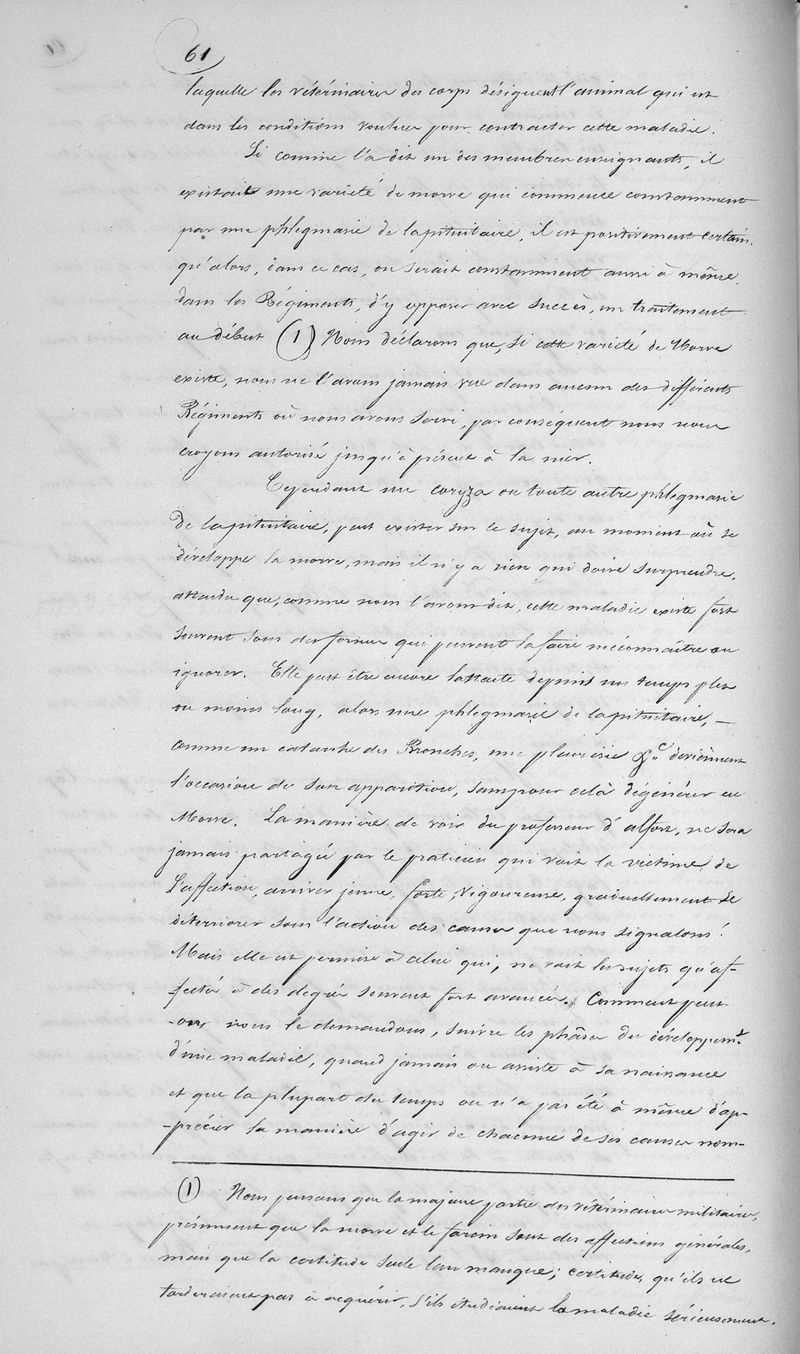 61
laquelle les vétérinaires des corps désignent l'animal qui est
dans les conditions voulues pour contracter cette maladie.
Si comme l'a dit un des membres enseignants, il
existait une variété de morve qui commence constamment
par une phlegmasie de la pituitaire, il est positivement certain
qu'alors, dans ce cas, on serait constamment aussi à même,
dans les Régiments, d'y opposer avec succès, un traitement
au début (1) Nous déclarons que, si cette variété de Morve
existe, nous ne l'avons jamais vue dans aucun des différents
Régiments où nous avons servi, par conséquent nous nous
croyons autorisé jusqu'à présent à la nier.
Cependant un coryza ou toute autre phlegmasie
de la pituitaire, peut exister sur le sujet, au moment où se
développe la morve, mais il n'y a rien qui doive surprendre,
attendu que, comme nous l'avons dit, cette maladie existe fort
souvent sous des formes qui peuvent la faire méconnaître ou
ignorer. Elle peut être encore latente depuis un temps plus
ou moins long, alors une phlegmasie de la pituitaire, —
comme un catarrhe des Bronches, une pleurésie &c deviennent
l'occasion de son apparition, sans pour celà dégénérer en
Morve. La manière de voir du professeur d'alfort, ne sera
jamais partagée par le praticien qui voit la victime de
l'affection, arriver jeune, forte, vigoureuse, graduellement se
déteriorer sous l'action des causes que nous signalons!
Mais elle est permise à celui qui, ne voit les sujets qu'af-
-fectés à des degrés souvent fort avancés. Comment peut
-on, nous le demandons, suivre les phâses du développemt
d'une maladie, quand jamais on assiste à sa naissance
et que la plupart du temps on n'a pas été à même d'ap-
-précier la manière d'agir de chacune de ses causes nom-
(1) Nous pensons que la majeure partie des vétérinaires militaires,
présument que la morve et le farcin sont des affections générales,
mais que la certitude seule leur manque; certitude, qu'ils ne
tarderaient pas à acquérir, s'ils étudiaient la maladie sérieusement.